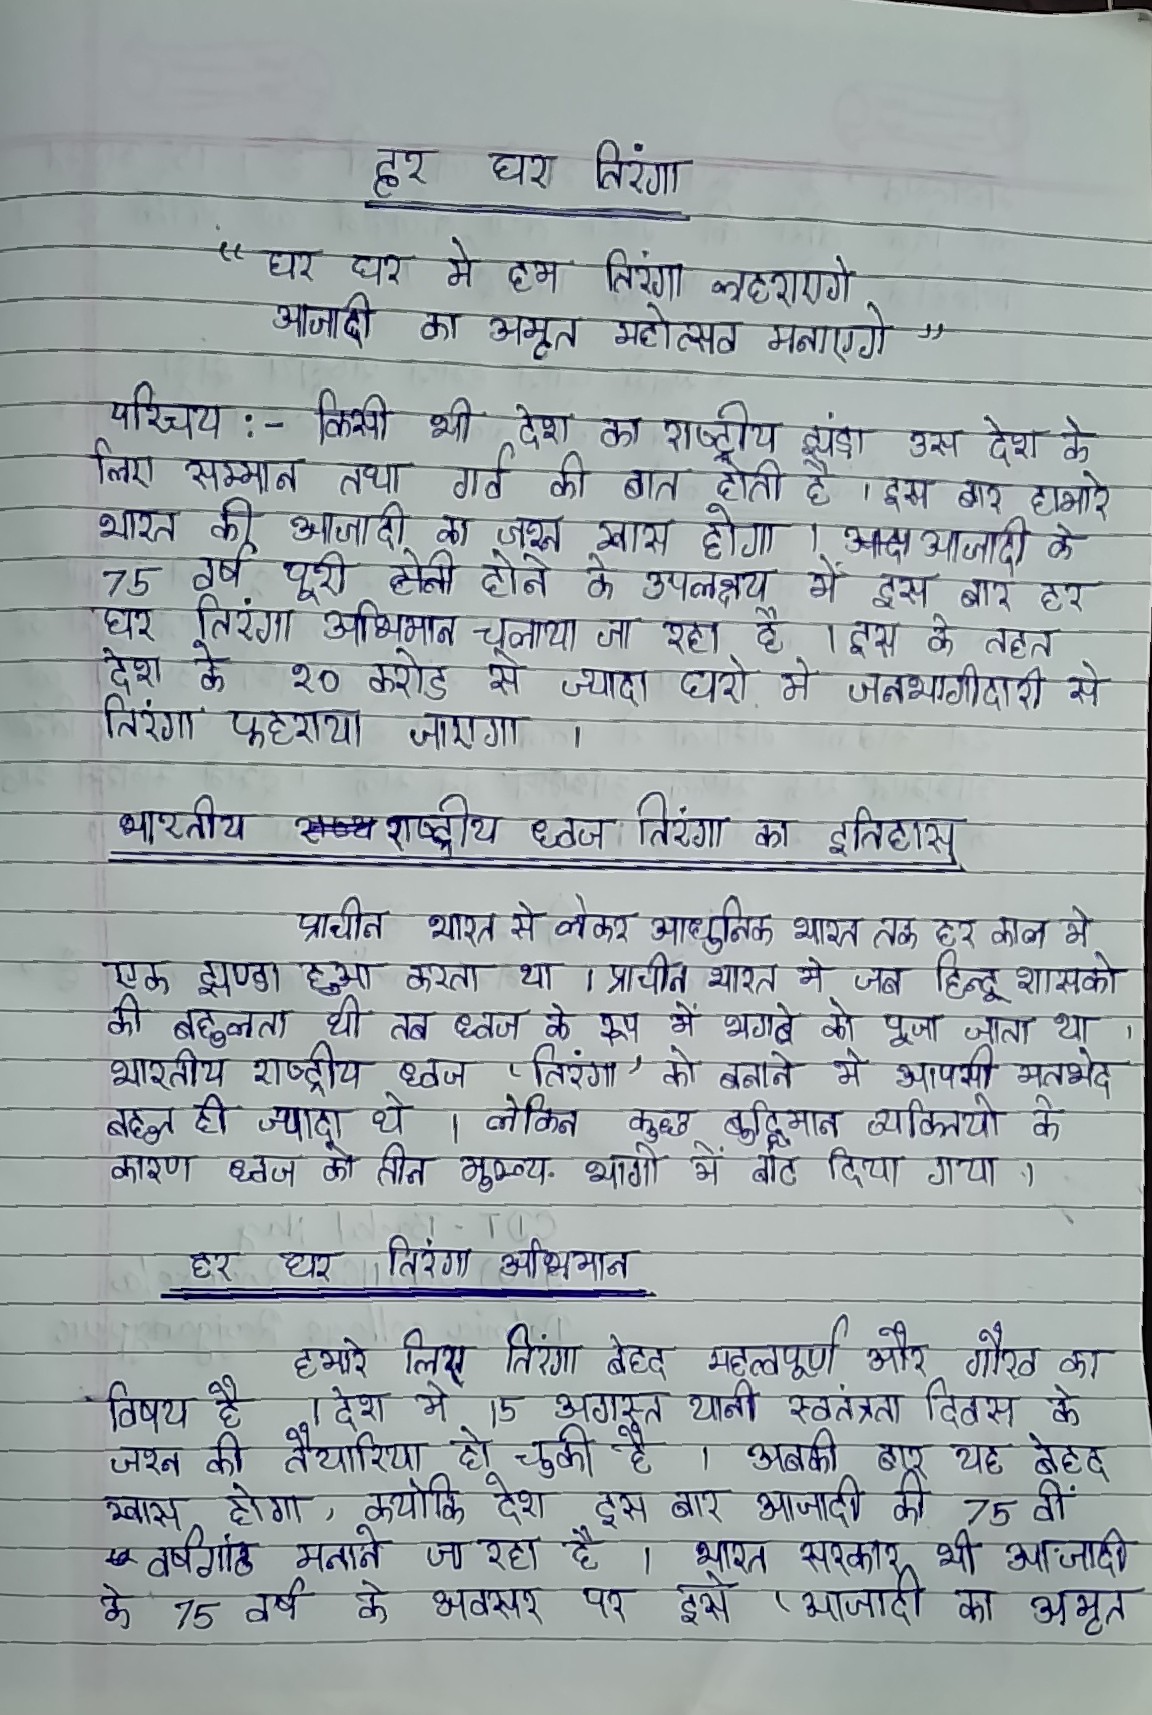 हर घर तिरंगा
“ घर घर मे हम तिरंगा लहराएगे
आजादी का अमृत महोत्सव मनाएगे ”
परिचय :- किसी भी देश का राष्ट्रीय झंडा उस देश के
लिए सम्मान तथा गर्व की बात होती है । इस बार हामारे
भारत की आजादी का जश्न खास होगा । आजादी के
75 वर्ष पूरी होने के उपलक्षय में इस बार हर
घर तिरंगा अभिमान चलाया जा रहा है । इस के तहत
देश के २० करोड से ज्यादा घरो मे जनभागीदारी से
तिरंगा फहराया जाएगा ।
भारतीय राष्ट्रीय ध्वज तिरंगा का इतिहास
प्राचीन भारत से लेकर आधुनिक भारत तक हर काल मे
एक झण्डा हुआ करता था । प्राचीन भारत मे जब हिन्दू शासको
की बहुलता थी तब ध्वज के रूप में भगवे को पूजा जाता था ।
भारतीय राष्ट्रीय ध्वज ‘तिरंगा’ को बनाने मे आपसी मतभेद
बहुत ही ज्यादा थे । लेकिन कुछ बुद्धिमान व्यक्तियो के
कारण ध्वज को तीन मुख्य भागो में बाँट दिया गया ।
हर घर तिरंगा अभिमान
हमारे लिए तिरंगा बेहद महत्वपूर्ण और गौरव का
विषय है । देश मे 15 अगस्त यानी स्वतंत्रता दिवस के
जश्न की तैयारिया हो चुकी है । अबकी बार यह बेहद
खास होगा, क्योकि देश इस बार आजादी की 75 वीं
वर्षगांठ मनाने जा रहा है । भारत सरकार भी आजादी
के 75 वर्ष के अवसर पर इसे ‘आजादी का अमृत